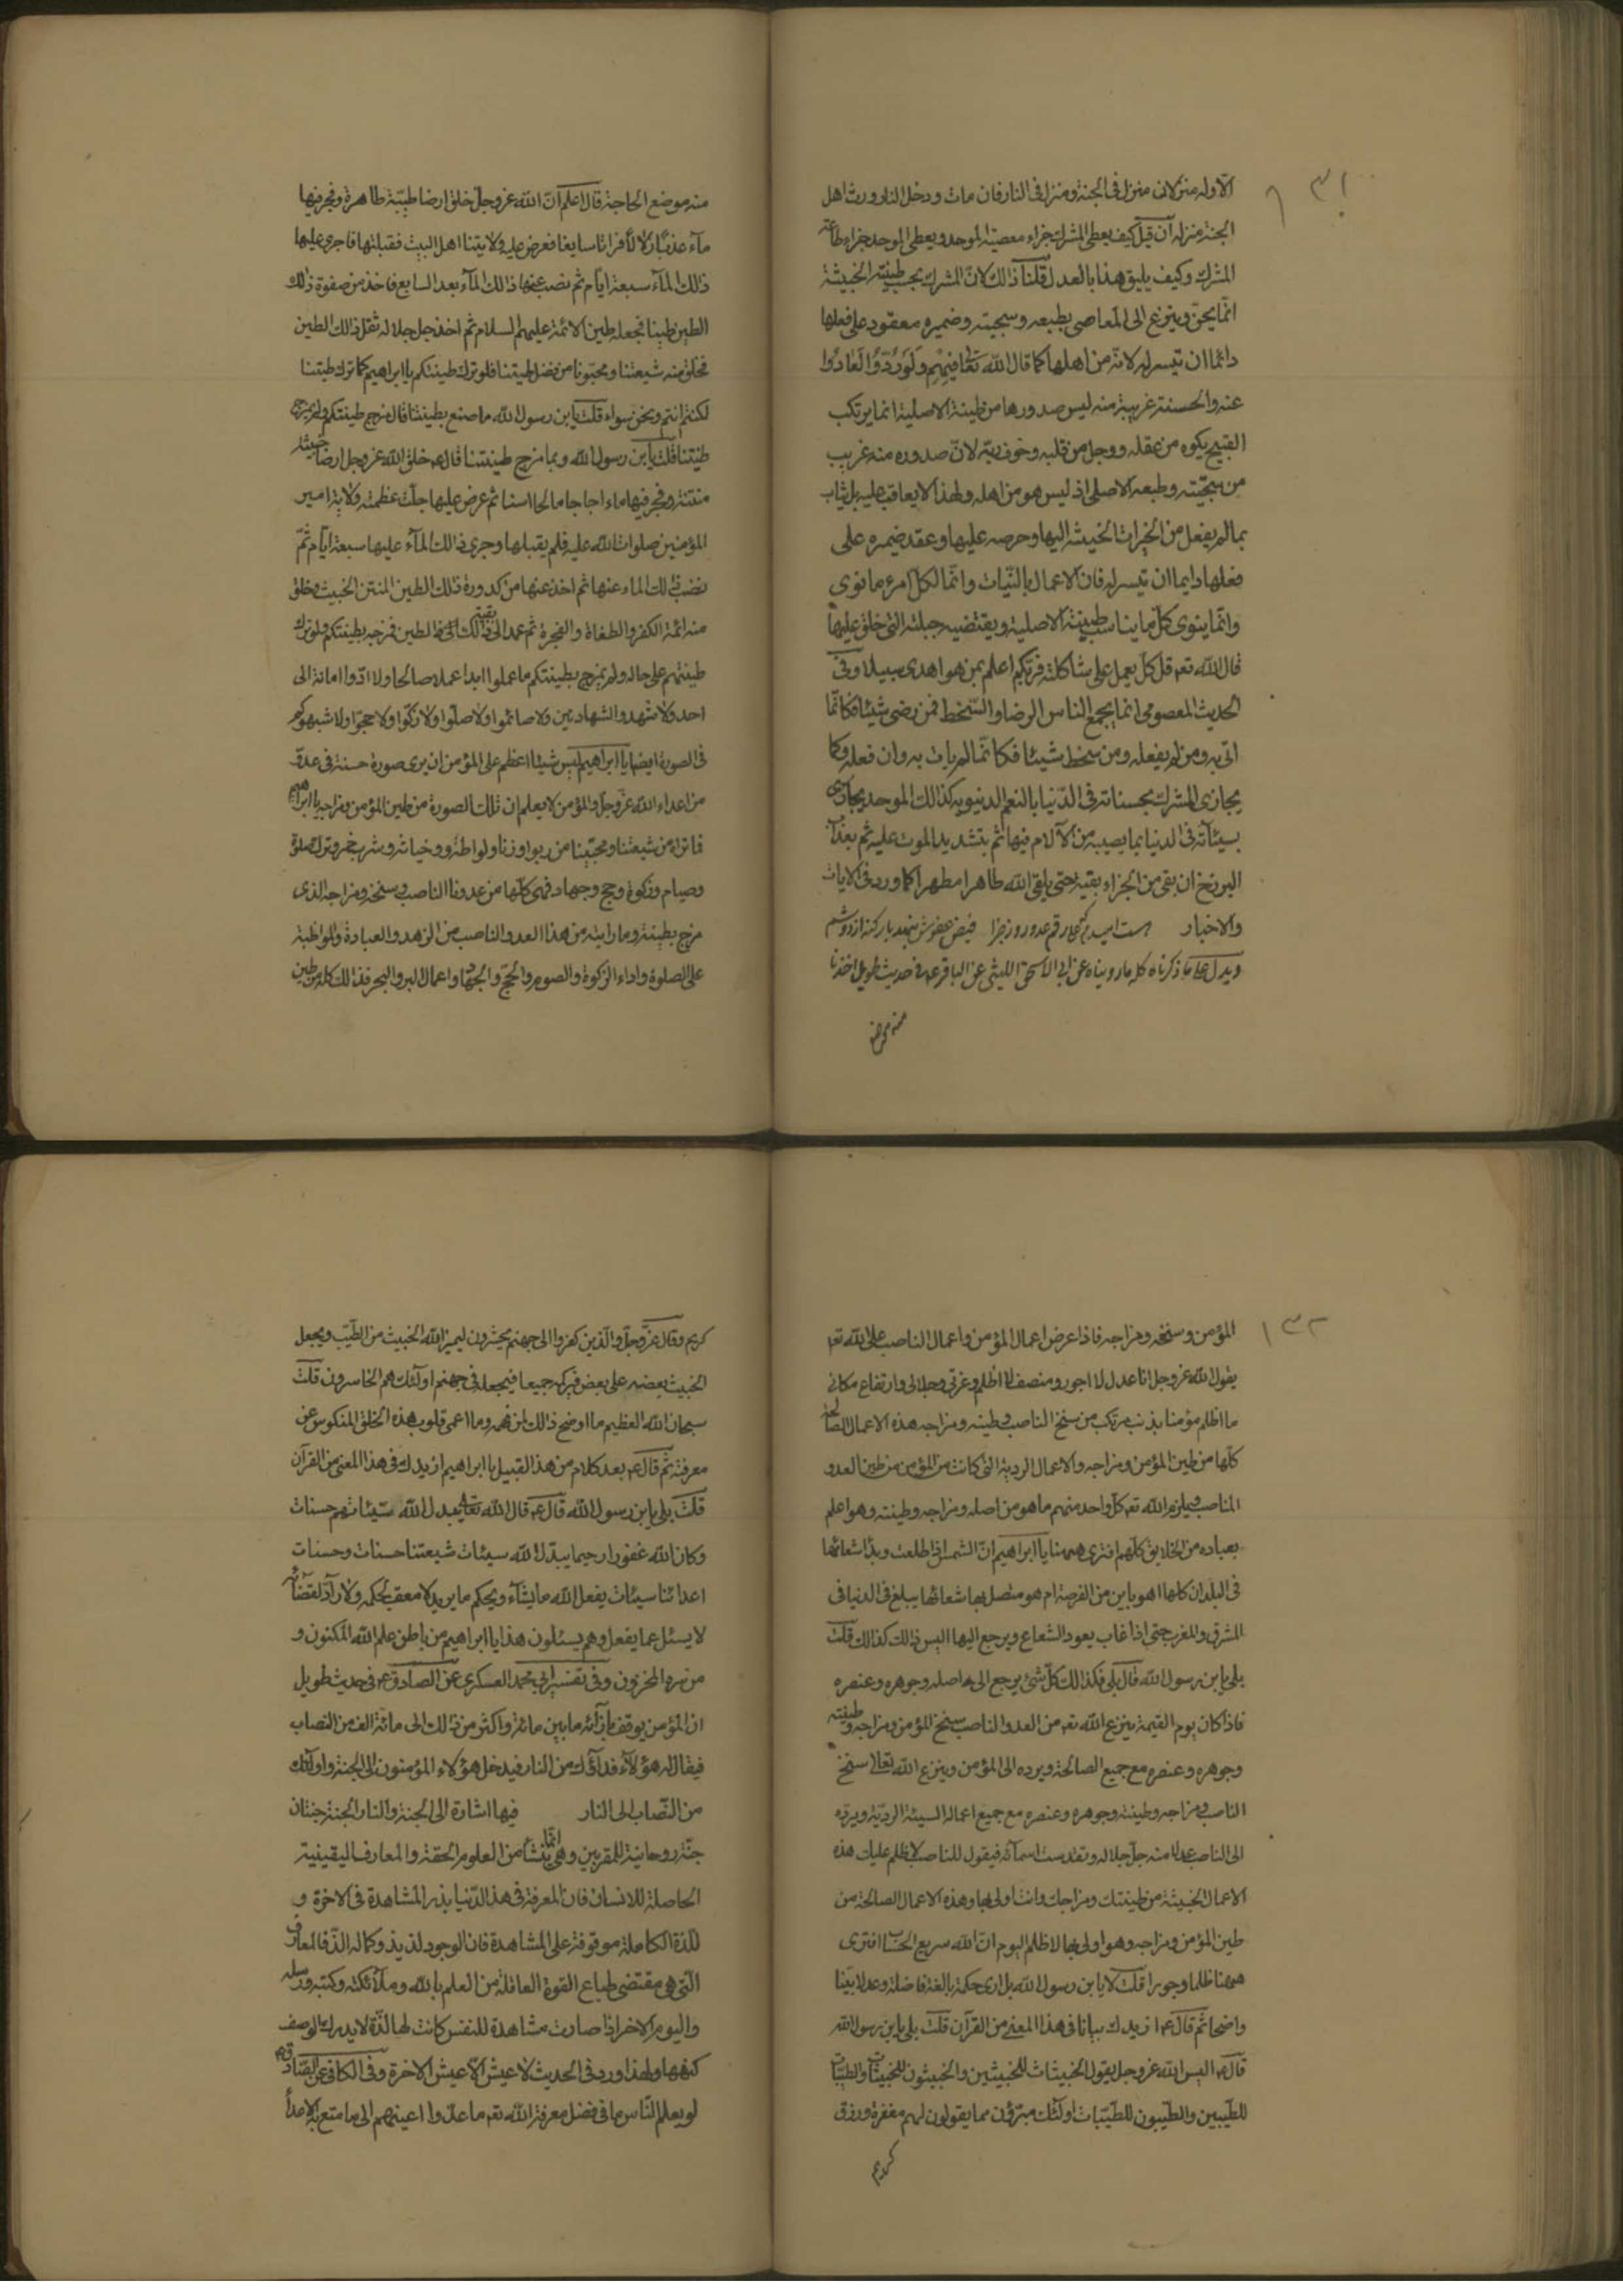 ١٣١
الا وله منزلان منزل فى الجنة ومنزل فى النار فان مات ودخل النار ورث اهل
الجنة منزله آن قيل كيف يعطى المشرك جزاء معصية الموحد ويعطى الموحد جزاء طاعة
المشرك وكيف يليق هذا بالعدل قلنا ذالك لان المشرك بحسب طينته الخبيثة
انما يحن وينزع الى المعاصى بطبعه وسجيته وضميره معقود على فعلها
دائما ان تيسر له لانه من اهلها كما قال الله تعالى فيهم ولو ردوا لعادوا
عنه والحسنة غريبة منه ليس صدورها من طينة الاصلية انما يرتكب
القبيح بكره من عقله ووجل من قلبه وخوف ربه لان صدوره منه غريب
من سجيته وطبعه الاصلى اذ ليس هو من اهله ولهذا لا يعاقب عليه بل يثاب
بما لم يفعل من الخيرات لحنينه اليها وحرصه عليها وعقد ضميره على
فعلها دايما ان تيسر له فان الاعمال بالنيات وانما لكل امرء ما نوى
وانما ينوى كل ما يناسب طينته الاصلية ويقتضيه جبلته التى خلق عليها
قال الله تعه قل كل يعمل على شاكلته فربكم اعلم بمن هو اهدى سبيلا وفى
الحديث المعصومى انما يجمع الناس الرضا والسخط فمن رضى شيئا فكانما
اتى به ومن لم يفعله ومن سخط شيئا فكانما لم يات به وان فعله وكما
يجازى المشرك بحسناته فى الدنيا بالنعم الدنيويه كذالك الموحد يجازى
بسيئآته فى الدنيا بما يصيبه من الآلام فيها ثم بتشديد الموت عليه ثم بعذاب
البرزخ ان بقى من الجزاء بقية حتى يلقى الله طاهرا مطهرا كما ورد فى الايات
والاخبار هست اميدم كه على رغم عدو روز جزا فيض عفوش ننهد بار كنه از دوشم
ويدل على ما ذكرناه كله ما رويناه عن ابى الاسحق الليثى عن الباقر عه فى حديث طويل اخذنا
منه موضع
منه موضع الحاجة قال اعلم ان الله عز وجل خلق ارضا طيبة طاهرة وفجر فيها
مآء عذبا زلالا فراتا سايغا فعرض عليه ولايتنا اهل البيت فقبلتها فاجرى عليها
ذالك المآء سبعة ايام ثم نضب عنها ذالك المآء بعد السابع فاخذ من صفوة ذالك
الطين طينا فجعله طين الائمة عليهم السلام ثم اخذ جل جلاله ثفل ذالك الطين
فخلق منه شيعتنا ومحبونا من فضل طينتنا فلو ترك طينتكم يا ابراهيم كما ترك طينتنا
لكنتم انتم ونحن سواء قلت يا بن رسول الله ما صنع بطينتنا قال مزج طينتكم ولم يمزج
طينتنا قلت يا بن رسول الله وبما مزج طينتنا قال عه خلق الله عز وجل ارضا خبيثة
منتنة وفجر فيها ماء اجاجا مالحا اسنا ثم عرض عليها جلت عظمته ولاية امير
المؤمنين صلوات الله عليه فلم يقبلها وجرى ذالك المآء عليها سبعة ايام ثم
نضب ذالك الماء عنها ثم اخذ عنها من كدورة ذالك الطين المنتن الخبيث وخلق
منه ائمة الكفر والطغاة والفجرة ثم عمد الى بقية ذالك الطين فمزجه بطينتكم ولو ترك
طينتهم على حاله ولم يمزج بطينتكم ما عملوا ابدا عملا صالحا ولا ادوا امانة الى
احد ولا شهدوا الشهادتين ولا صائموا ولا صلوا ولا زكوا ولا حجوا ولا شبهوكم
فى الصورة ايضا يا ابراهيم ليس شيئا اعظم على المؤمن ان يرى صورة حسنة فى عدو
من اعداء الله عز وجل والمؤمن لا يعلم ان تلك الصورة من طين المؤمن ومزاجه يا ابراهيم
فما تراه من شيعتنا ومحبينا من ربوا وزنا ولواطة وخيانة وشرب خمر وترك صلوة
وصيام وزكوة وحج وجهاد فهى كلها من عدونا الناصب وسنخه ومزاجه الذى
مزج بطينته وما رايته من هذا العدو الناصب من الزهد والعبادة والمواظبة
على الصلوة واداء الزكوة والصوم والحج والجهاد واعمال البر والبحر فذالك كله من طين
١٣٢
المؤمن وسنخه ومزاجه فاذا عرض اعمال المؤمن واعمال الناصب على الله تعه
يقول الله عز وجل انا عدل لا اجور ومنصف لا اظلم وعزتى وجلالى وارتفاع مكانى
ما اظلم مؤمنا بذنب مرتكب من سنخ الناصب وطينه ومزاجه هذه الاعمال الصالحة
كلها من طين المؤمن ومزاجه والاعمال الردية التى كانت من المؤمن من طين العدو
الناصب ويلزم الله تعه كل واحد منهم ما هو من اصله ومزاجه وطينته وهو اعلم
بعباده من الخلايق كلهم افترى ههنا يا ابراهيم ان الشمس اذا طلعت وبدا شعاعها
فى البلدان كلها اهو باين من القرصة ام هو متصل بها شعاعها يبلغ فى الدنيا فى
المشرق والمغرب حتى اذا غاب يعود الشعاع ويرجع اليها اليس ذالك كذالك قلت
بلى يا بن رسول الله قال بلى فكذالك كل شئ يرجع الى اصله وجوهره وعنصره
فاذا كان يوم القيمة ينزع الله تعه من العدو الناصب سنخ المؤمن ومزاجه وطينته
وجوهره وعنصره مع جميع الصالحة ويرده الى المؤمن وينزع الله تعالى سنخ
الناصب ومزاجه وطينته وجوهره وعنصره مع جميع اعماله السيئة الردية ويرده
الى الناصب عدلا منه جل جلاله وتقدست اسمآئه فيقول للناصب لا ظلم عليك هذه
الاعمال الخبيثة من طينتك ومزاجك وانت اولى بها وهذه الاعمال الصالحة من
طين المؤمن ومزاجه وهو اولى بها لا ظلم اليوم ان الله سريع الحساب افترى
ههنا ظلما وجورا قلت لا يا بن رسول الله بل ارى حكمة بالغة فاضلة وعدلا بينا
واضحا ثم قال عه ازيدك بيانا فى هذا المعنى من القرآن قلت بلى يا بن رسول الله
قال عه اليس الله عز وجل يقول الخبيثات للخبيثين والخبيثون للخبيثات والطيبات
للطيبين والطيبون للطيبات اولئك مبرؤن مما يقولون لهم مغفرة ورزق
كريم
كريم وقال عز وجل والذين كفروا الى جهنم يحشرون ليميز الله الخبيث من الطيب ويجعل
الخبيث بعضه على بعض فيركمه جميعا فيجعله فى جهنم اولئك هم الخاسرون قلت
سبحان الله العظيم ما اوضح ذالك لمن فهمه وما اعمى قلوب هذه الخلق المنكوس عن
معرفته ثم قال عه بعد كلام من هذا القبيل يا ابراهيم ازيدك فى هذا المعنى من القرآن
قلت بلى يا بن رسول الله قال عه قال الله تعالى يبدل الله سيئاتهم حسنات
وكان الله غفورا رحيما يبدل الله سيئات شيعتنا حسنات وحسنات
اعدائنا سيئات يفعل الله ما يشآء ويحكم ما يريد لا معقب لحكمه ولا رآد لقضائه
لا يسئل عما يفعل وهم يسئلون هذا يا ابراهيم من باطن علم الله المكنون و
من سره المخزون وفى تفسير ابى محمد العسكرى عن الصادق عه فى حديث طويل
ان المؤمن يوقف بازآئه ما بين مائة واكثر من ذالك الى مائة الف من النصاب
فيقال له هؤلآء فدآؤك من النار فيدخل هؤلاء المؤمنون الى الجنة واولئك
من النصاب الى النار فيها اشارة الى الجنة والنار الجنة جنتان
جنة روحانية للمقربين وهى انما ينشأ من العلوم الحقة والمعارف اليقينية
الحاصلة للانسان فان المعرفة فى هذا الدنيا بذر المشاهدة فى الاخرة و
اللذة الكاملة موقوفة على المشاهدة فان الوجود لذيذ وكماله الذ فالمعارف
التى هى مقتضى طباع القوة العاقلة من العلم بالله وملآئكته وكتبه ورسله
واليوم الاخر اذا صارت مشاهدة للنفس كانت لها لذة لا يدرك الوصف
كنهها ولهذا ورد فى الحديث لا عيش الا عيش الاخرة وفى الكافى عن الصادق عه
لو يعلم الناس ما فى فضل معرفة الله تعه ما مدوا اعينهم الى ما متع به الاعداء